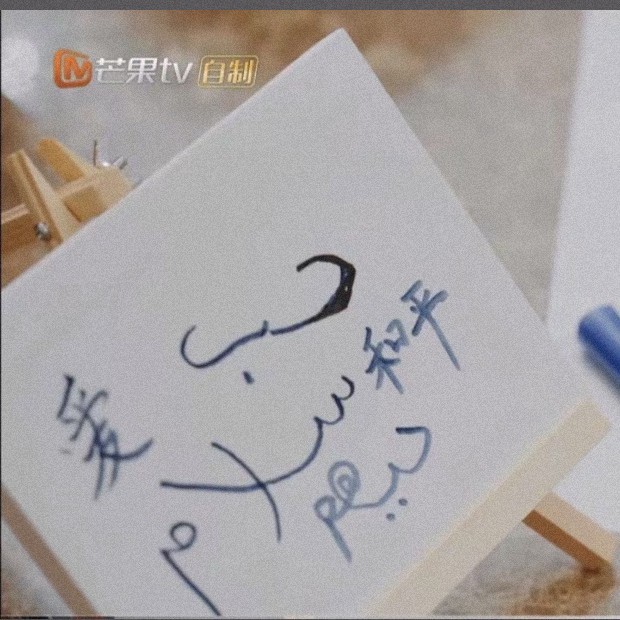 芒果tv 自制
حب
爱
سلام
和平